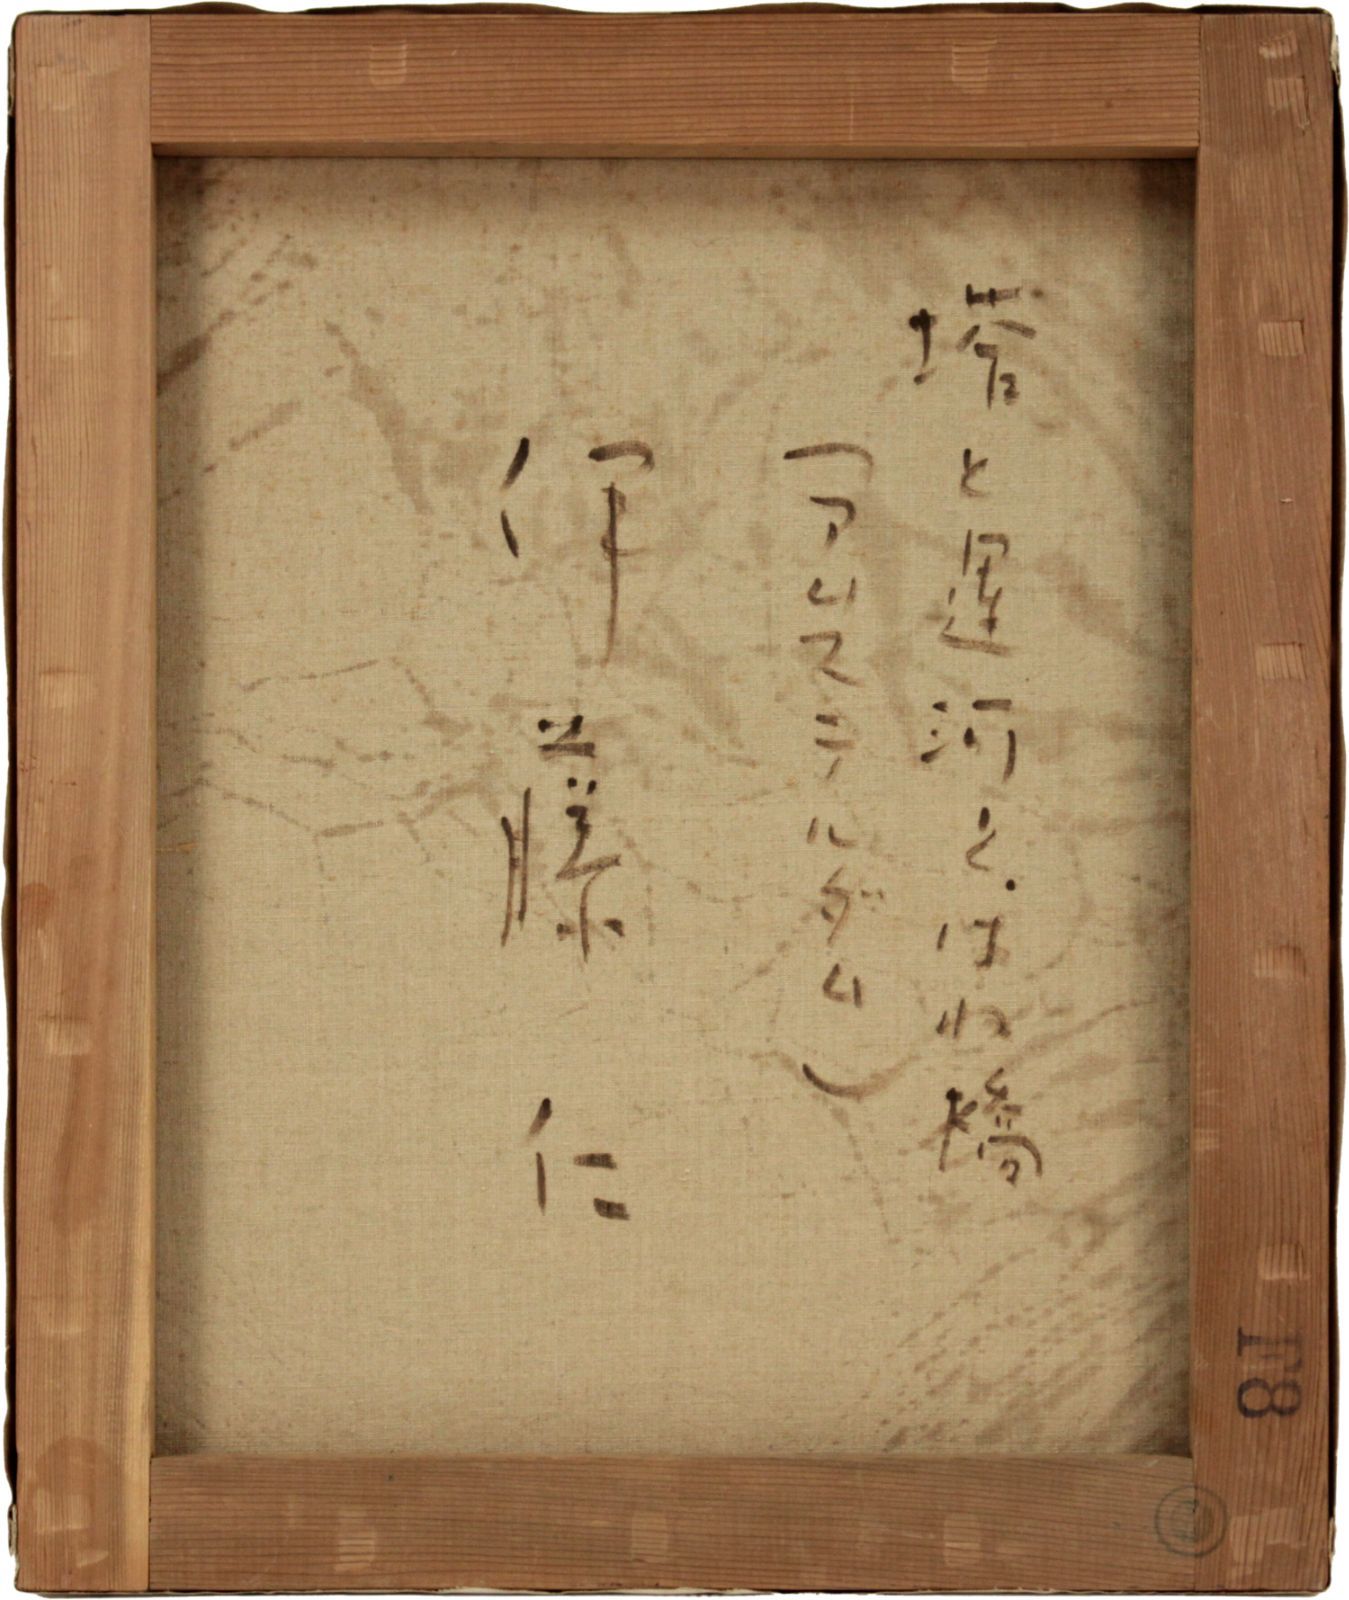 塔と運河と.はね橋
(アムステルダム)
伊藤仁
F8